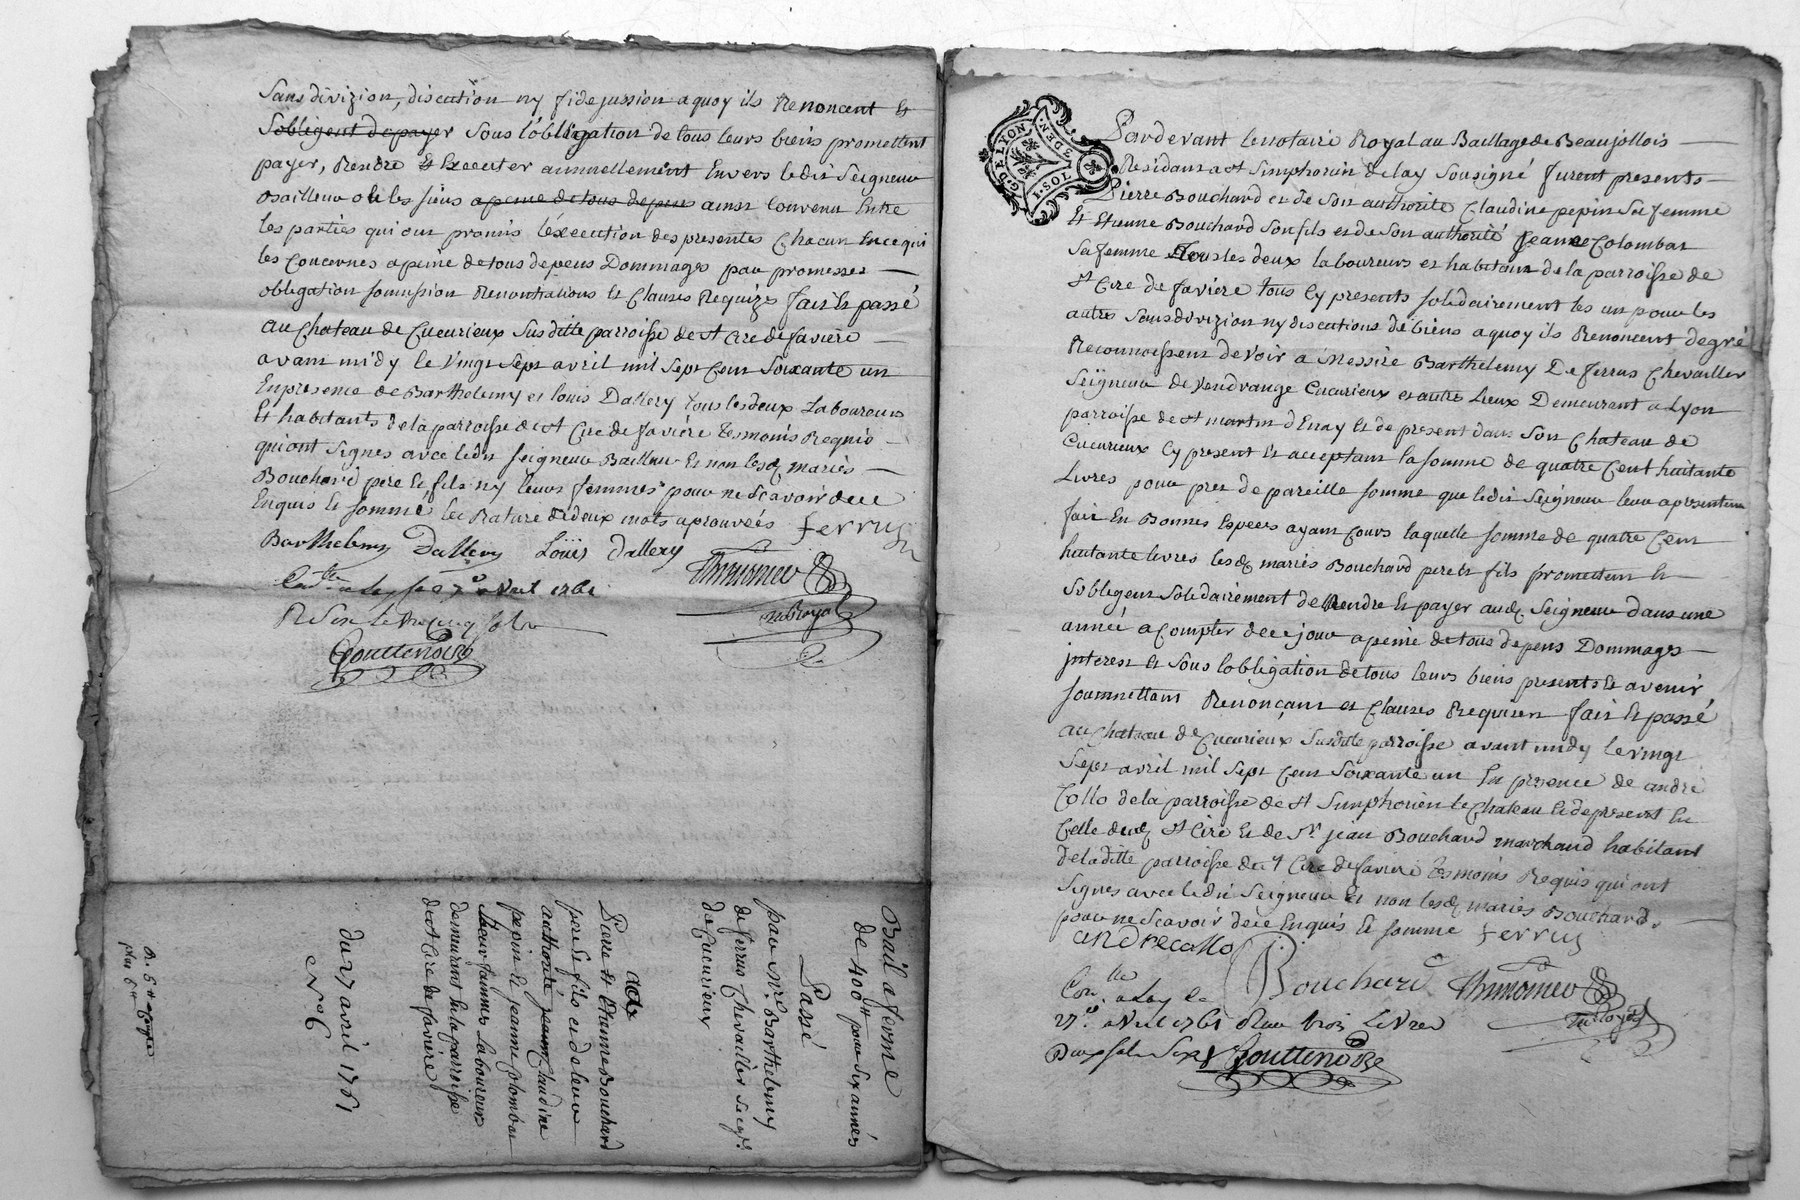 Sans divizion, discution ny fidejussion a quoy ils Renoncent Et
Sobligent de payer Sous l'obligation de tous leurs biens promettent
payer, Rendre Et Executer annuellement Envers ledit Seigneur
Bailleur ou les siens a peine de tous depens ainsi Convenu Entre
les parties qui ont promis l'éxecution des presentes Chacun En ce qui
les Concernes a peine de tous depens Dommages par promesses
obligation soumission Renontiations Et Clauses Requizes fait Et passé
au Chateau de Cucurieux Susditte parroisse de St Cire de favière
avant midy le Vingt Sept avril mil Sept Cent Soixante un
En presence de Barthelemy et louis Dallery tous les deux Laboureurs
Et habitants de la parroisse de St Cire de favière temoins Requis
qui ont Signés avec ledit Seigneur Bailleur Et non lesd. mariés
Bouchard pere Et fils ny leurs femmes pour ne Scavoir de ce
Enquis Et sommé la Rature de deux mots aprouvées ferrus
Barthelemy Dallery Loüis dallery
avril 1761
No. Royal
Gouttenoire
Bail a ferme
de 400 # pour Six années
Passé
par Mre. Barthelemy
de ferrus Chevaillier Seigr.
de Cucurieux
aux
Pierre Et Etienne Bouchard
pere Et fils et de leur
authorité Claudine
pepin Et jeanne Colombat
leurs femmes Laboureurs
demeurant En la parroisse
de St Cire de favière
du 27 avril 1761
No. 6
G. DE LYON
3 DEN.
1 SOL
Pardevant le notaire Royal au Baillage de Beaujollois
Residant a St Simphorien de lay Sousigné furent presents
Pierre Bouchard et de Son authorité Claudine pepin Sa femme
Et Etienne Bouchard Son fils et de Son authorité Jeanne Colombat
Sa femme tous les deux laboureurs et habitant de la parroisse de
St Cire de favière tous Cy presents solidairement les un pour les
autres Sans divizion ny discutions de biens a quoy ils Renoncent de gré
Reconnoissent devoir a Messire Barthelemy De ferrus Chevailler
Seigneur de Vendrange Cucurieux et autre Lieux Demeurant a Lyon
parroisse de St martin d'Enay Et de present dans Son Chateau de
Cucurieux Cy present Et acceptant la somme de quatre Cent huitante
Livres pour prez de pareille somme que ledit Seigneur leur a presentem
fait En Bonnes Especes ayant Cours laquelle somme de quatre Cent
huitante livres lesd. mariés Bouchard pere Et fils promettent Et
S'obligent Solidairement de Rendre Et payer aud. Seigneur dans une
année a Compter de ce jour a peine de tous depens Dommages
interest Et Sous l'obligation de tous leurs biens presents Et avenir
soumettant Renonçant et Clauses Requises fait Et passé
au Chateau de Cucurieux Susditte parroisse avant midy le vingt
Sept avril mil Sept Cent Soixante un En presence de andré
Collo de la parroisse de St Simphorien le Chateau Et de present En
Celle dud. St Cire Et de Sr jean Bouchard marchand habitant
de laditte parroisse de St Cire de favière temoins Requis qui ont
Signés avec ledit Seigneur Et non lesd. mariés Bouchard.
pour ne Scavoir de ce Enquis Et sommé ferrus
andre collo Bouchard
Conlle. a Lay le
27e. avril 1761 Reçu trois Livres
Deux sols Six d. Gouttenoire
No. Royal